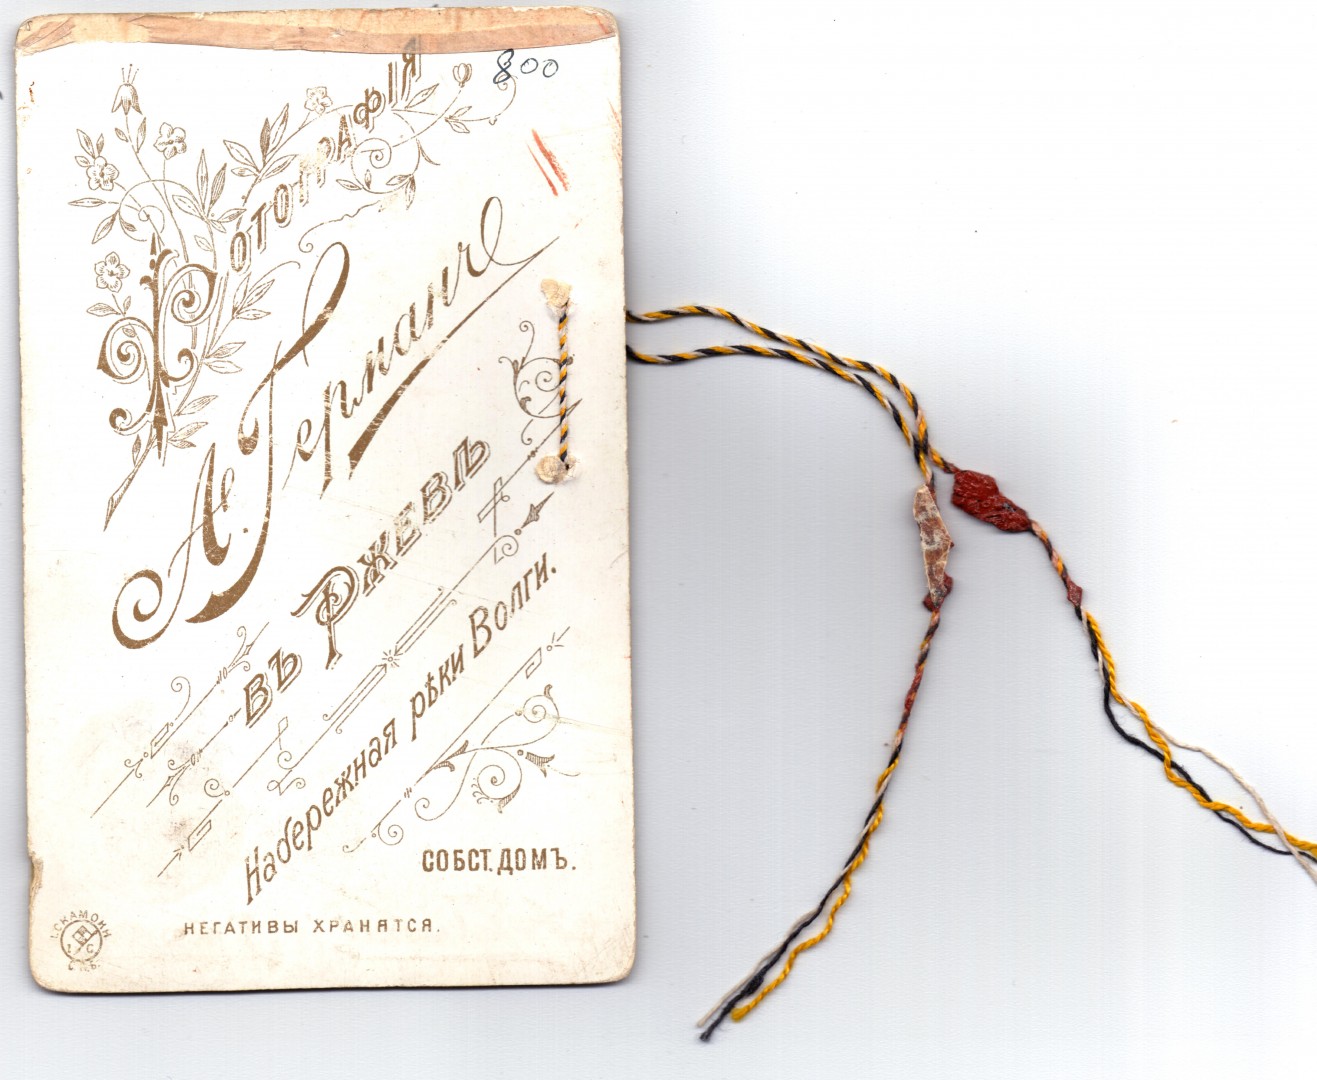 800
Фотографія
Ав. Германъ
въ Ржевѣ
Набережная рѣки Волги.
СОБСТ. ДОМЪ.
НЕГАТИВЫ ХРАНЯТСЯ.
І.СКАМОНИ
С.П.Б.